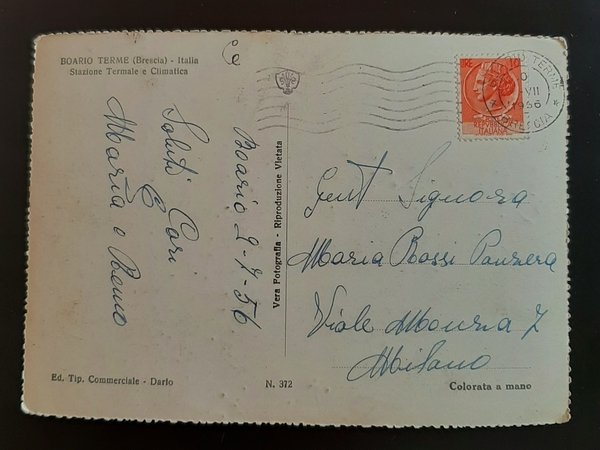 BOARIO TERME (Brescia) - Italia
Stazione Termale e Climatica
Boario 2-7-56
Saluti Cari
Maria e Remo
Vera Fotografia - Riproduzione Vietata
10
TERME
VII
1956
BRESCIA
ITALIANA
Gent Signora
Maria Rossi Panzera
Viale Monza 7
Milano
Ed. Tip. Commerciale - Darfo
N. 372
Colorata a mano